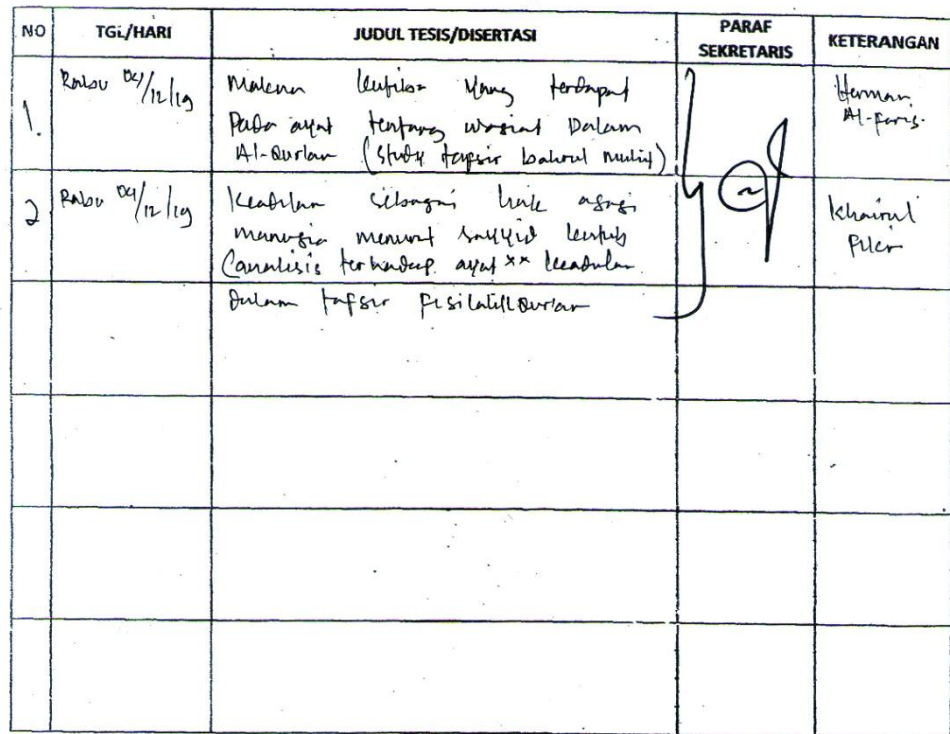 NO TGL/HARI JUDUL TESIS/DISERTASI PARAF SEKRETARIS KETERANGAN
1. Rabu 04/12/19 Makna kutiba yang terdapat Herman
Pada ayat tentang wasiat Dalam Al-Faris.
Al-Qur'an (Study tafsir bahrul muhit)
2 Rabu 04/12/19 Keadilan sebagai hak asasi Khairul
manusia menurut sayyid kutub Fikr
(analisis terhadap ayat xx keadilan
dalam tafsir fizilalil Qur'an